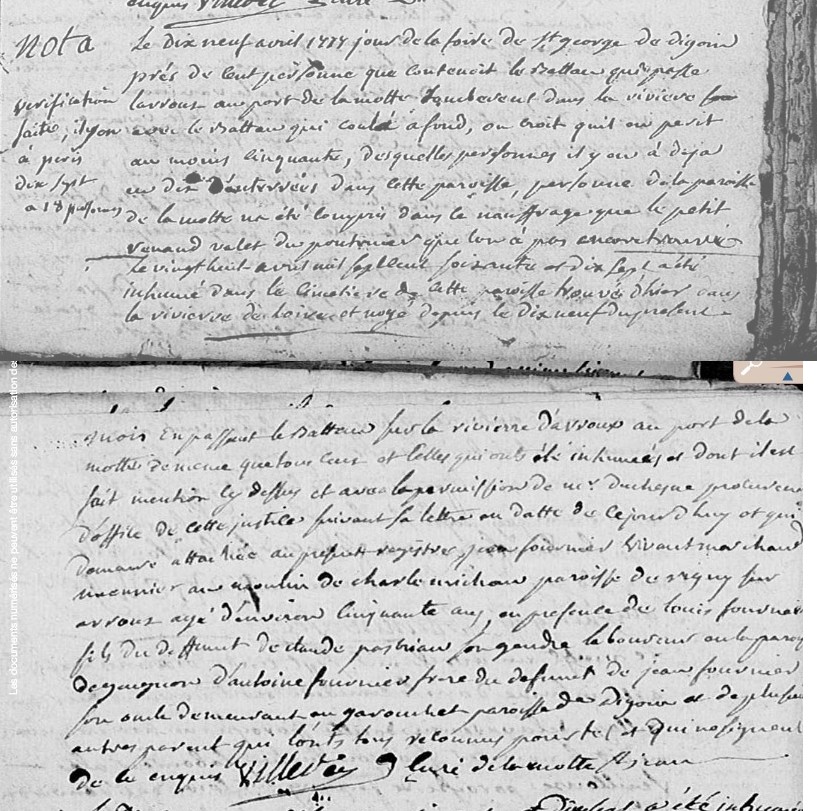 de ce enquis Villedey Curé
nota
verification
faite, il y en
à péris
dix sept
a 18 personnes
Le Dix neuf avril 1777 jour de la foire de St george de digoin
prés de Cent personne que Contenoit le Battau qui passe
larroux au port de la motte tomberent dans la riviere
avec le Battau qui coula à fond, on croit quil en perit
au moins Cinquante, desquelles personnes il y en à deja
eu dix enterrées dans Cette paroisse, personne de la paroisse
de la motte na été Compris dans le nauffrage que le petit
renaud valet du pontonier que lon à pas encore trouvé
Le vingt huit avril mil sept Cent soixante et dix sept a été
inhumé dans le Cimetiere de Cette paroisse trouvé d'hier dans
la riviere de Loire et noyé depuis le Dix neuf du present
mois En passant le Battau sur la riviere d'arroux au port de la
motte de meme que tous Ceux et Celles qui ont été inhumés et dont il est
fait mention Cy dessus et avec la permission de mr Duchesne procureur
d'office de Cette justice suivant sa lettre en datte de Cejourd huy et qui
demeure attachée au present registre, jean fournier Vivant marchand
meunier au moulin de charle michau paroisse de rigny sur
arroux agé d'environ Cinquante ans, en presence de Louis fournier
fils du deffunt de claude son gendre laboureur en la paroisse
de gueugnon d'antoine fournier frere du defunct de jean fournier
son oncle demeurant au garouchet paroisse de Digoin et de plusieurs
autres parent qui l'onts tous reconnus pour tel et qui ne signent
de ce enquis Villedey Curé de la motte St jean
a été inhumé
Les documents numérisés ne peuvent être utilisés sans autorisation de